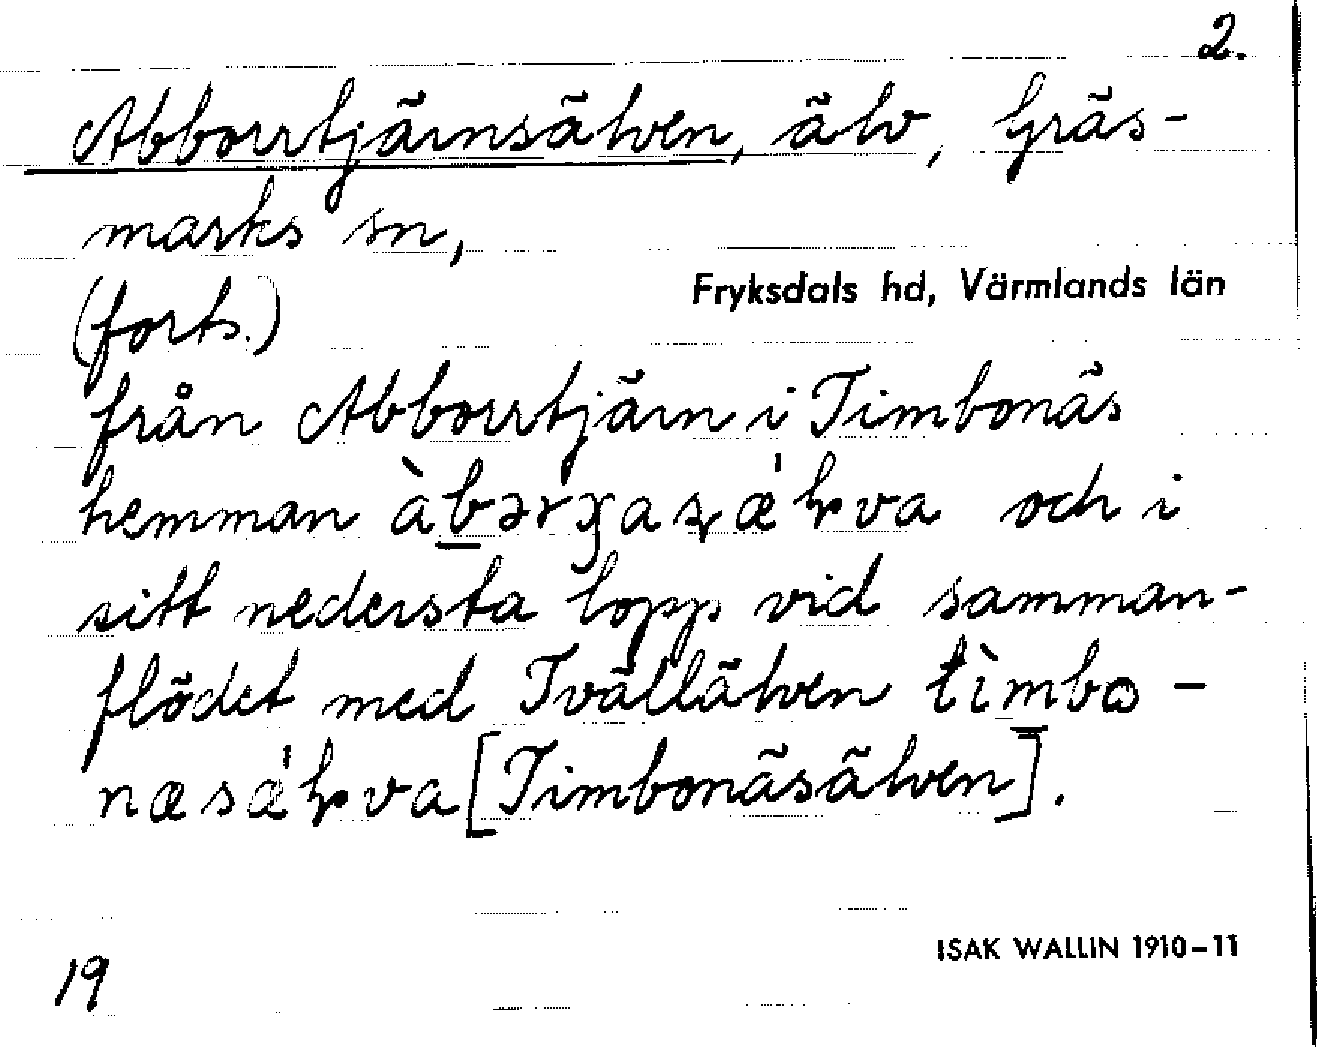 2.
Abborrtjärnsälven, älv, Gräs-
marks sn,
Fryksdals hd, Värmlands län
(forts.)
från Abborrtjärn i Timbonäs
hemman och i
sitt nedersta lopp vid samman-
flödet med Tvällälven
[Timbonäsälven].
ISAK WALLIN 1910–11
19